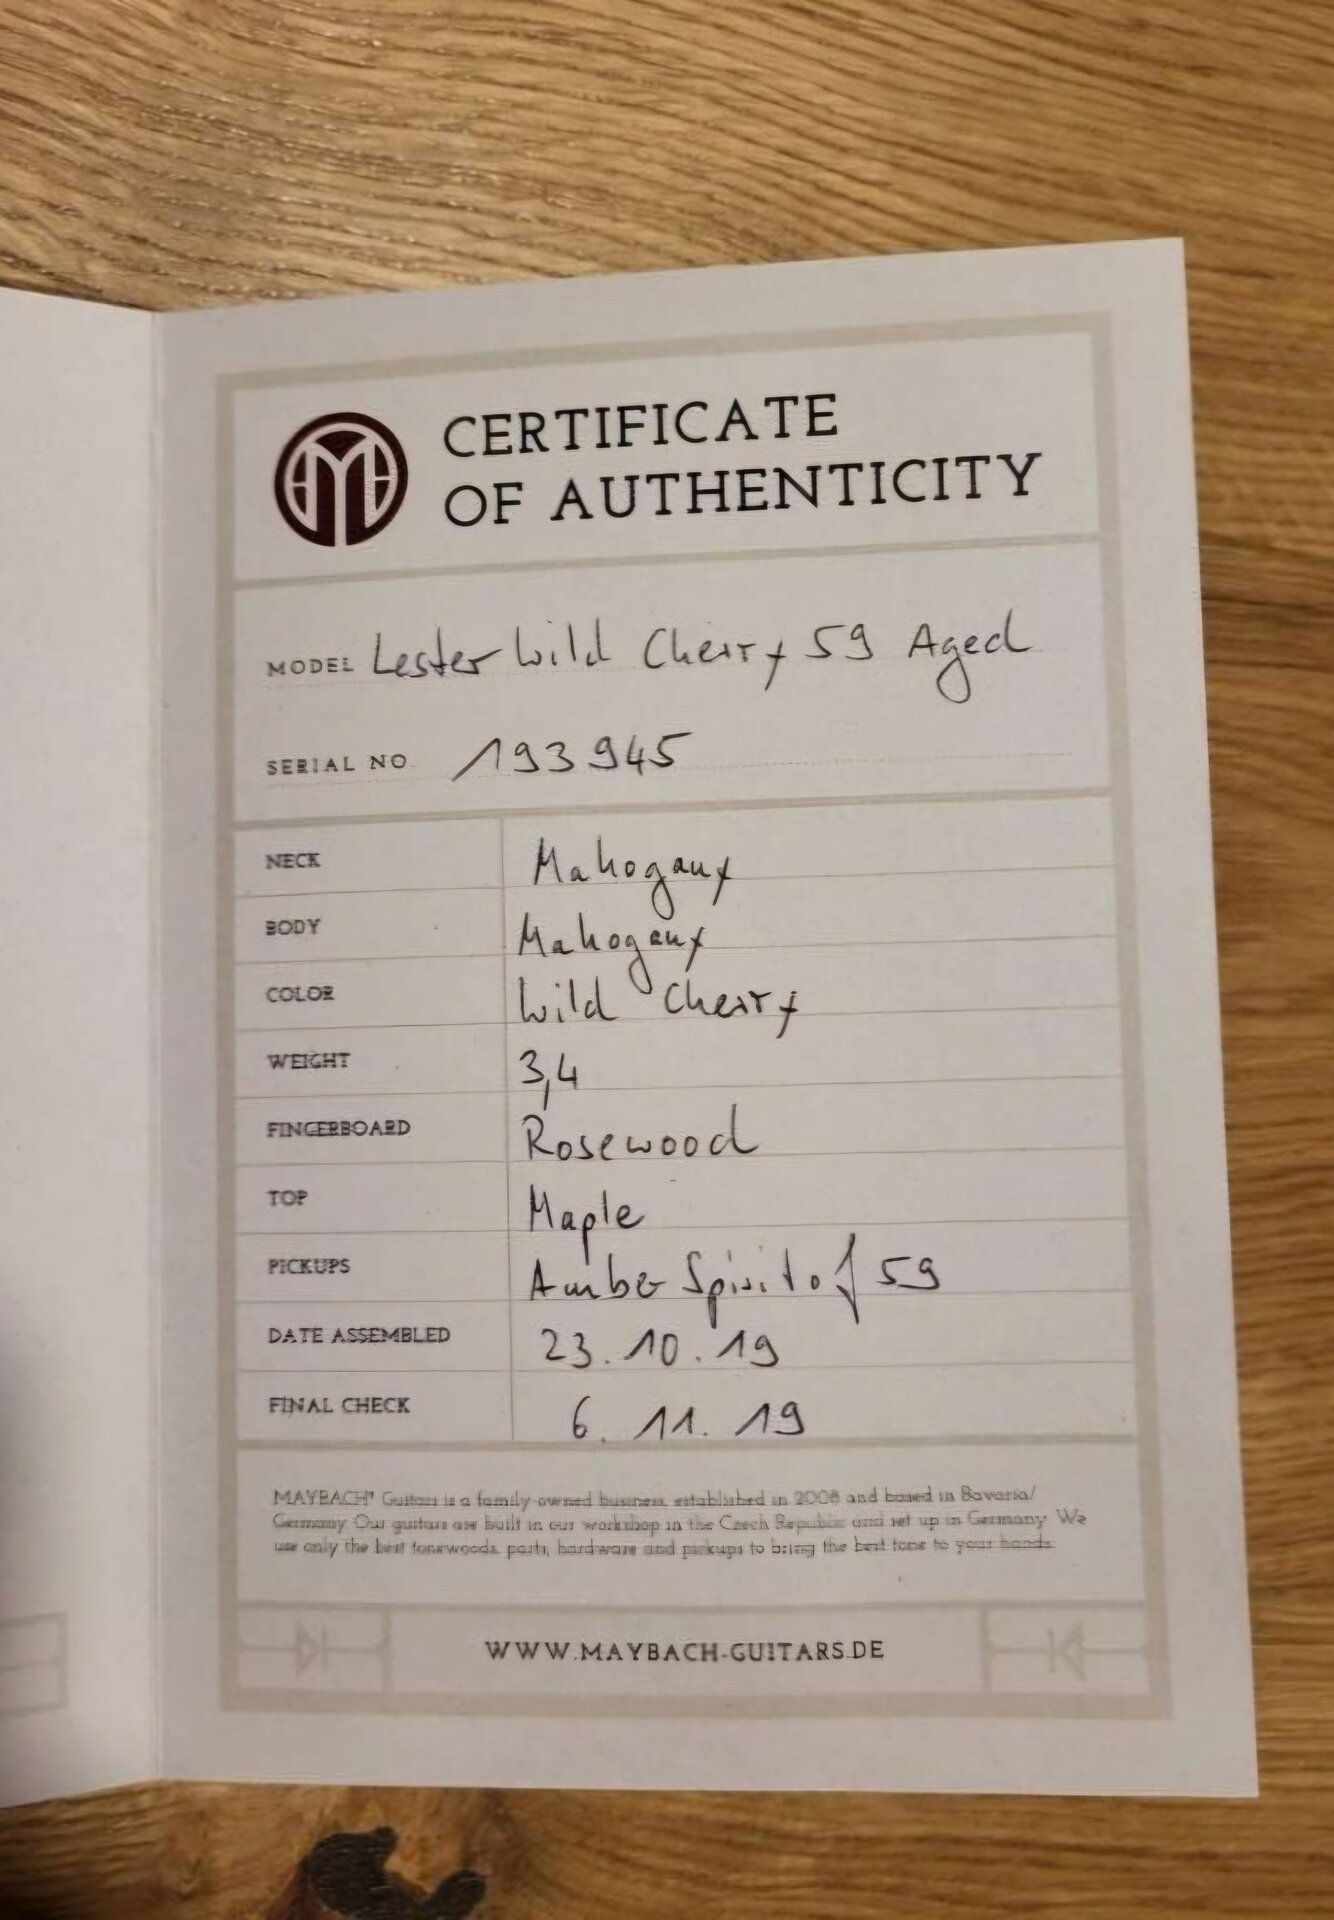 CERTIFICATE
OF AUTHENTICITY
MODEL Lester Wild Cherry 59 Aged
SERIAL NO. 193945
NECK Mahogany
BODY Mahogany
COLOR Wild Cherry
WEIGHT 3,4
FINGERBOARD Rosewood
TOP Maple
PICKUPS Amber Spirit of 59
DATE ASSEMBLED 23.10.19
FINAL CHECK 6.11.19
MAYBACH® Guitars is a family-owned business, established in 2008 and based in Bavaria/
Germany. Our guitars are built in our workshop in the Czech Republic and set up in Germany. We
use only the best tonewoods, parts, hardware and pickups to bring the best tone to your hands.
WWW.MAYBACH-GUITARS.DE